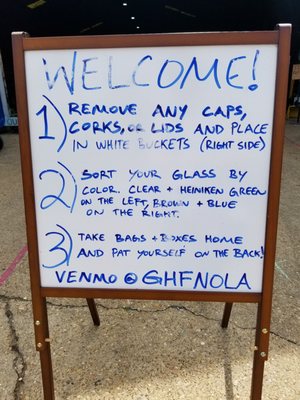 WELCOME!
1) REMOVE ANY CAPS,
CORKS, OR LIDS AND PLACE
IN WHITE BUCKETS (RIGHT SIDE)
2) SORT YOUR GLASS BY
COLOR. CLEAR + HEINIKEN GREEN
ON THE LEFT, BROWN + BLUE
ON THE RIGHT.
3) TAKE BAGS + BOXES HOME
AND PAT YOURSELF ON THE BACK!
VENMO @ GHFNOLA